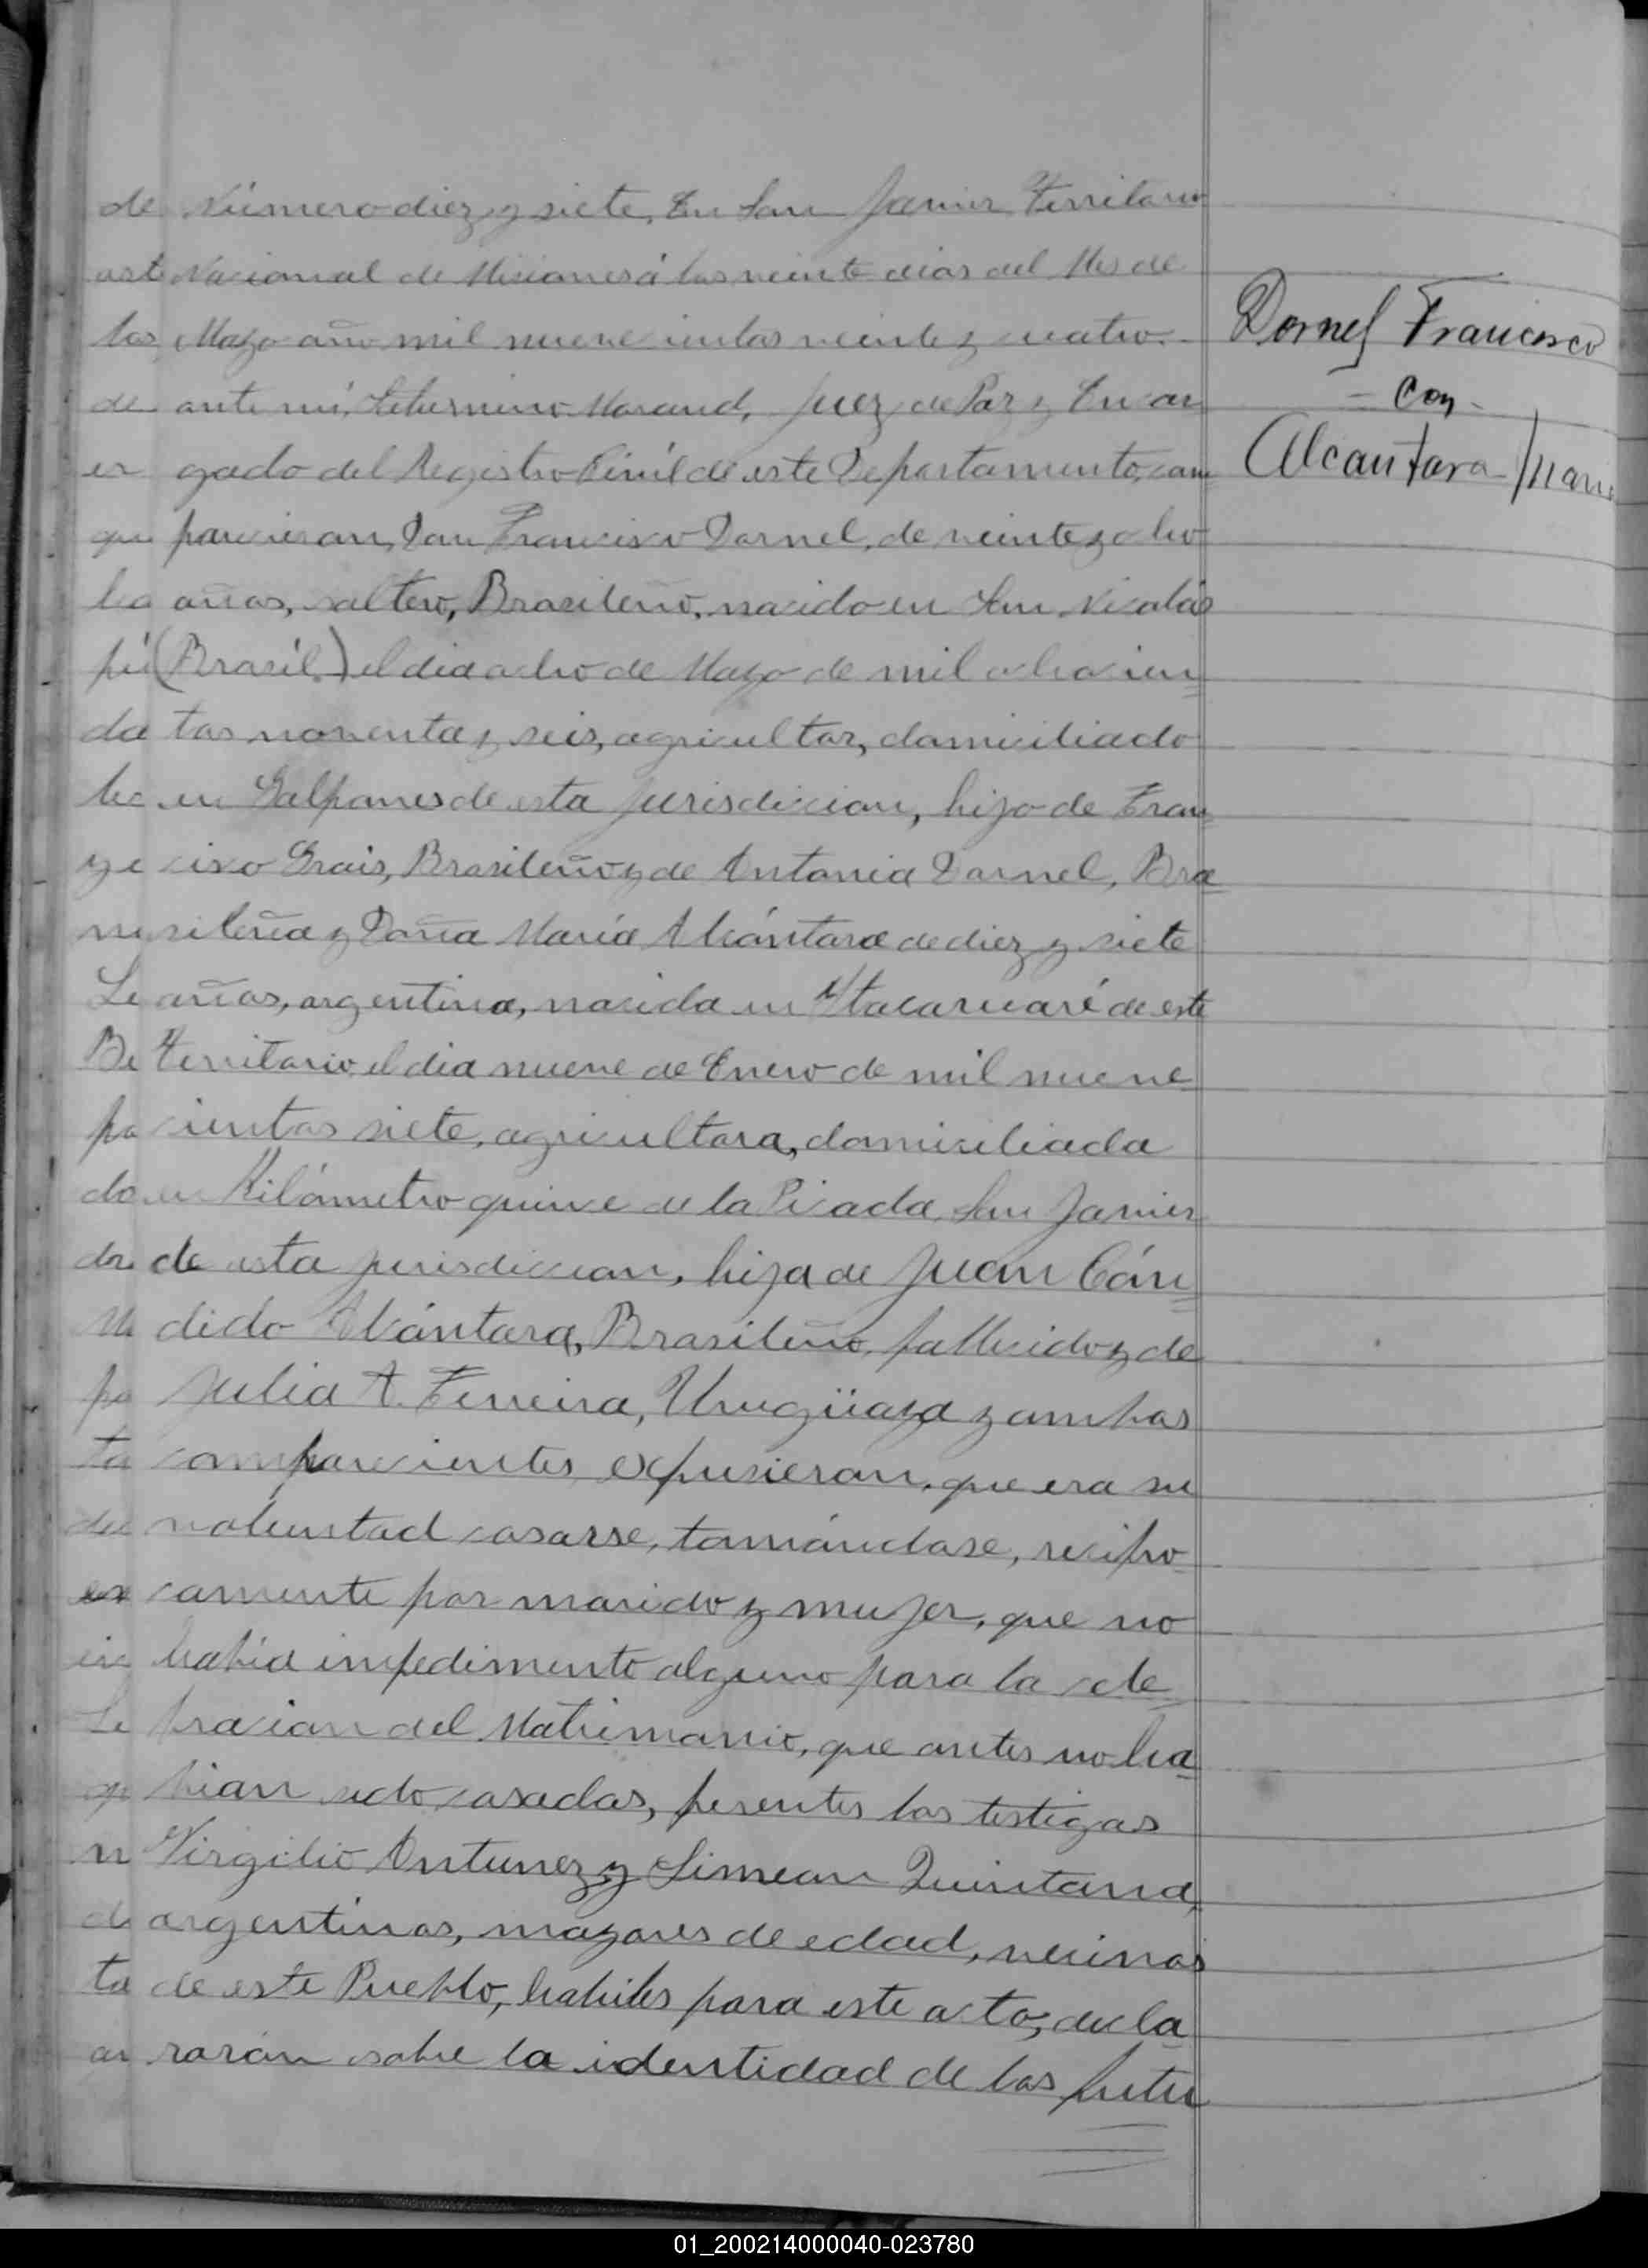 Número diez y siete. En San Javier Territorio
Nacional de Misiones á los veinte dias del Mes de
Mayo año mil nuevecientos veinte y cuatro.
ante mi, Morand, Juez de Paz y Encar
gado del Registro Civil de este Departamento, com
parecieron, Don Francisco Dornel, de veinte y ocho
años, soltero, Brasileño, nacido en San Nicolás
(Brasil.) el dia ocho de Mayo de mil ochocien
tos noventa y seis, agricultor, domiciliado
en Galpones de esta jurisdicion, hijo de Fran
cisco Brasileño y de Antonia Dornel, Bra
sileña y Doña María Alcántara de diez y siete
años, argentina, nacida en Ytacaruaré de este
Territorio, el dia nueve de Enero de mil nueve
cientos siete, agricultora, domiciliada
en Kilómetro quince de la Picada San Javier
de esta jurisdiccion, hija de Juan Cán
dido Alcántara, Brasileño, fallecido y de
Julia A. Ferreira, Uruguaya y ambos
comparecientes expusieron, que era su
voluntad casarse, tomándose, recipro
camente por marido y mujer, que no
habia impedimento alguno para la cele
bracion del Matrimonio, que antes no ha
bian sido casados, presentes los testigos
Virgilio Antunez y Simeon Quintana,
argentinos, mayores de edad, vecinos
de este Pueblo, habiles para este acto, decla
raron sobre la identidad de los futu
Dornel Francisco
- Con -
Alcantara
de
los
de
que
da
Le
pa
do
ta
ta
01_200214000040-023780